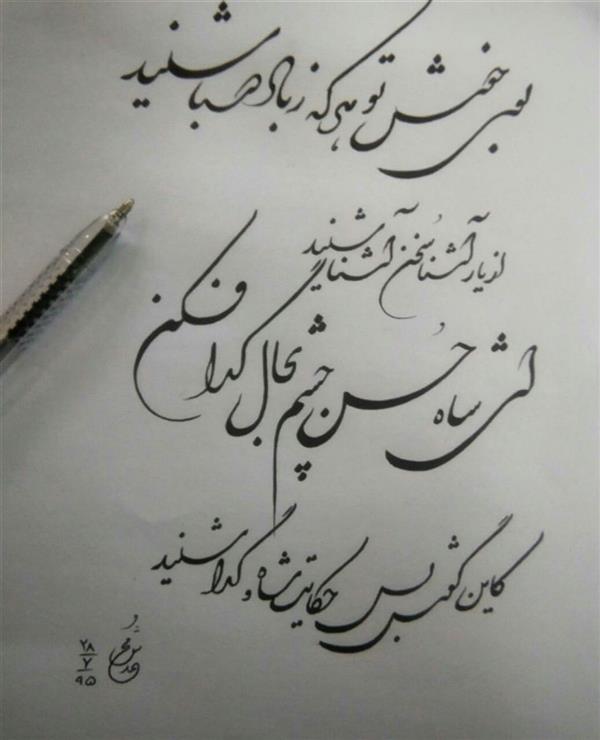 بوی خوش تو هر که ز باد صبا شنید
از یار آشنا سخن آشنا شنید
ای شاه حُسن چشم بحال گدا فکن
کاین گوش بس حکایت شاه و گدا شنید
۲۸
۷
۹۵